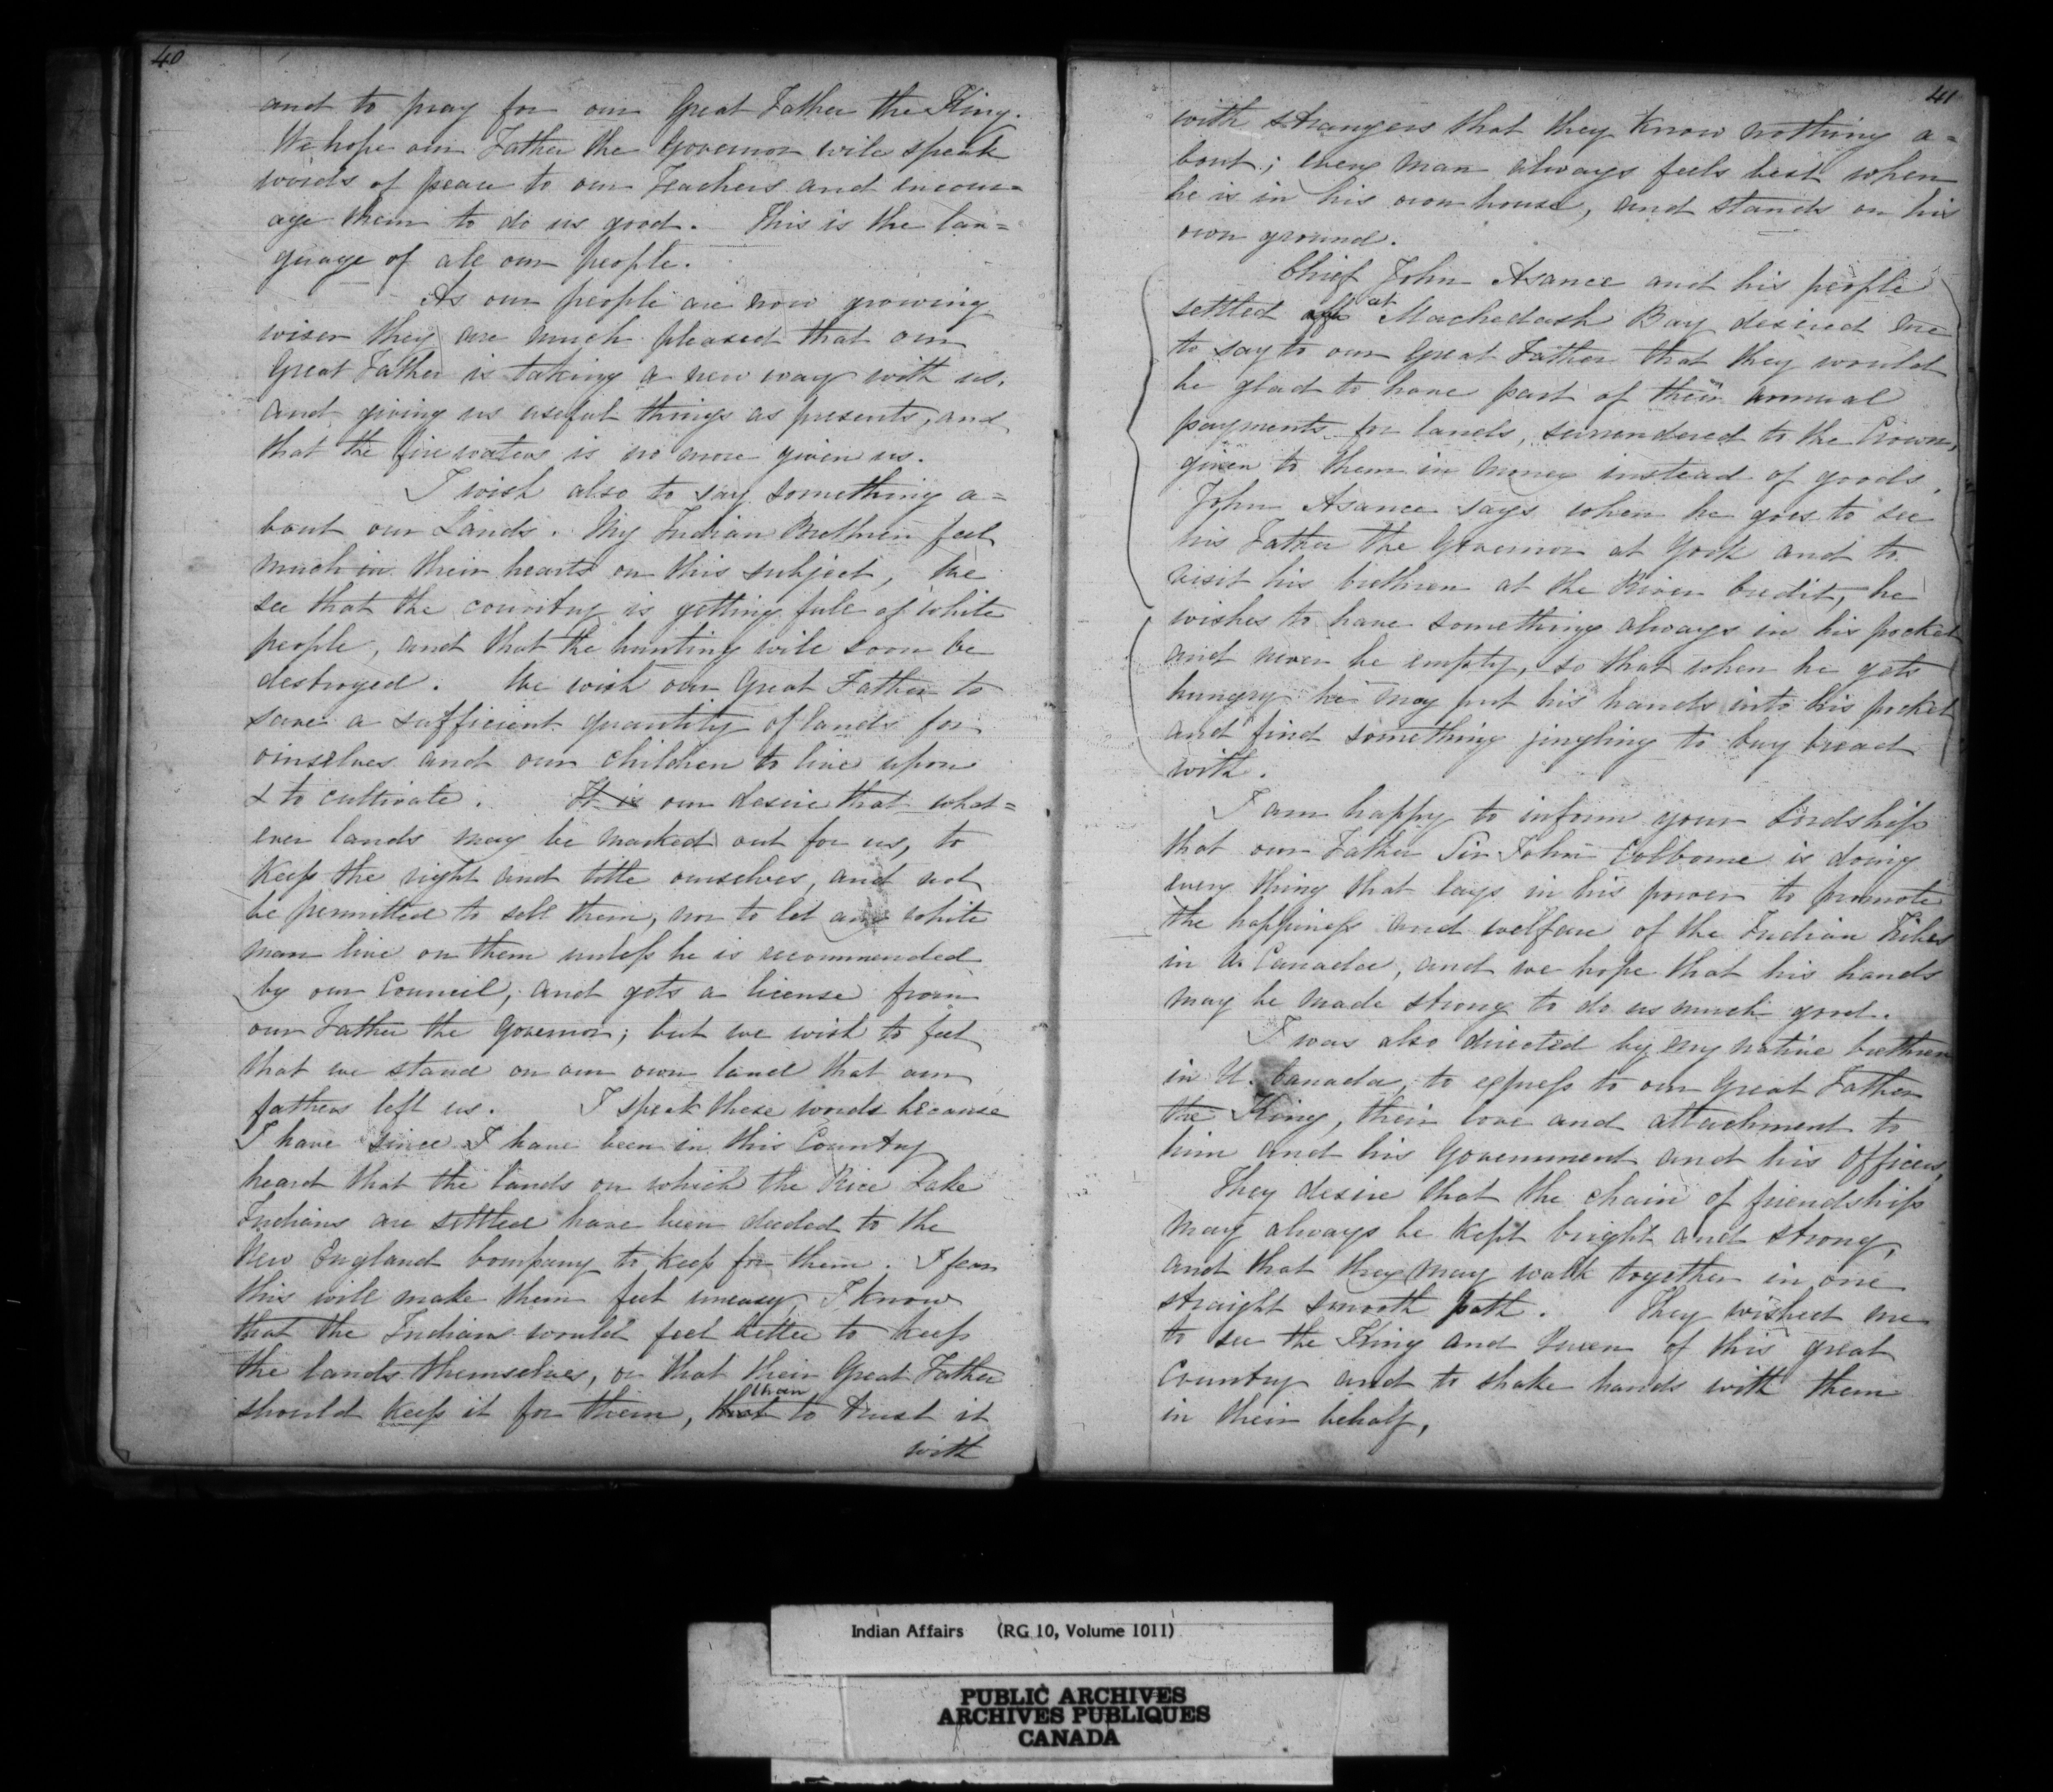 40
and to pray for our Great Father the King.
We hope our Father the Governor will speak
words of peace to our Teachers and encour=
age them to do us good. This is the lan=
guage of all our people.
As our people are now growing
wiser they are much pleased that our
Great Father is taking a new way with us.
and giving us useful things as presents, and
that the fire waters is no more given us.
I wish also to say something a=
bout our Lands. My Indian Brethren feel
much in their hearts on this subject, We
see that the country is getting full of white
people, and that the hunting will soon be
destroyed. We wish our Great Father to
save a sufficient quantity of lands for
ourselves and our children to live upon
& to cultivate. It is our desire that what=
ever lands may be marked out for us, to
keep the right and title ourselves, and not
be permitted to sell them, nor to let any white
man live on them unless he is recommended
by our Council, and gets a license from
our Father the Governor; but we wish to feel
that we stand on our own land that our
fathers left us. I speak these words because
I have since I have been in this Country
heard that the lands on which the Rice Lake
Indians are settled have been deeded to the
New England Company to keep for them. I fear
this will make them feel uneasy, I know
that the Indians would feel better to keep
the lands themselves, or that their Great Father
should keep it for them, that than to trust it
with
41
with strangers that they know nothing a=
bout; every man always feels best when
he is in his own house, and stands on his
own ground.
Chief John Asance and his people
settled at Machedash Bay desired me
to say to our Great Father that they would
be glad to have part of their annual
payments for lands, surrendered to the Crown,
given to them in money instead of goods.
John Asance says when he goes to see
his Father the Governor at York and to
visit his brethren at the River Credit, he
wishes to have something always in his pocket
and never be empty, so that when he gets
hungry he may put his hands into his pocket
and find something jingling to buy bread
with.
I am happy to inform your Lordship
that our Father Sir John Colborne is doing
every thing that lays in his power to promote
the happiness and welfare of the Indian Tribes
in U. Canada, and we hope that his hands
may be made strong to do us much good.
I was also directed by my native brethren
in U. Canada, to express to our Great Father
the King, their love and attachment to
him and his Government and his Officers,
They desire that the chain of friendship
may always be kept bright and strong,
and that they may walk together in one
straight smooth path. They wished me
to see the King and Queen of this great
Country and to shake hands with them
in their behalf,
Indian Affairs (RG 10, Volume 1011)
PUBLIC ARCHIVES
ARCHIVES PUBLIQUES
CANADA